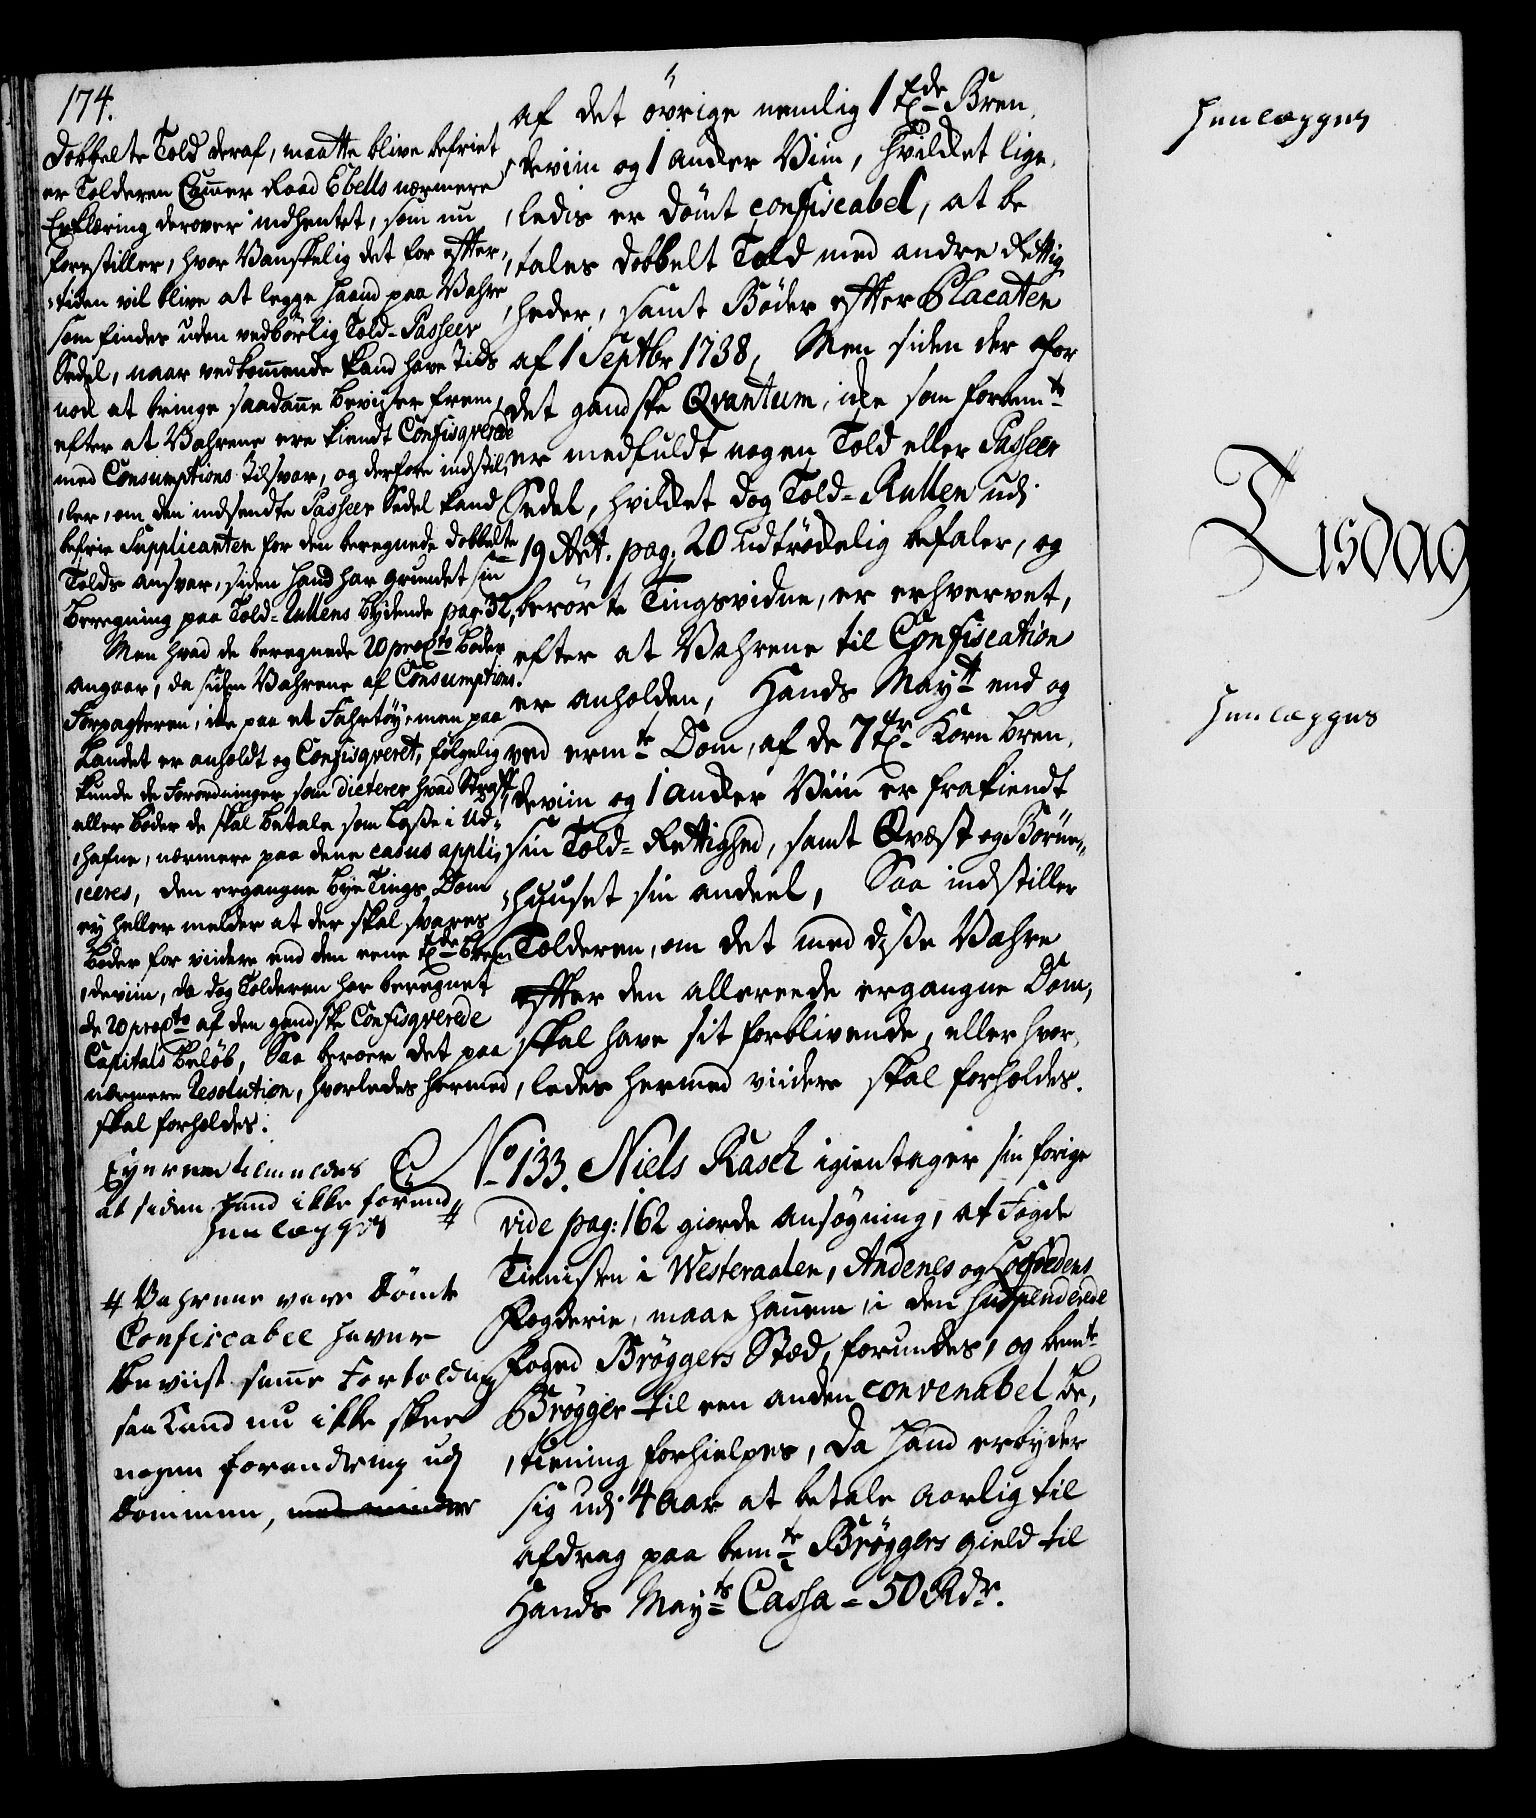 174.
dobbelte Told deraf, maatte blive befriet
er Tolderen Cammer Raad Ebells nærmere
Erklæring derover indhentet, som nu
forestiller, hvor Vanskelig det for efter,
,tiden vil blive at legge haand paa Vahre
som findes uden vedbörlig Told-Passeer
Sedel, naar vedkommende kand have Tids
nok at bringe saadanne beviser frem,
efter at Vahrene ere kiendt Confisqverede
med Consumptions Tilsvar, og derfore indstil,
,ler, om den indsendte Passeer Sedel kand
befrie Supplicanten for den beregnede dobbelte
Tolds ansvar, siden hand har grundet sin
beregning paa Told-Rullens bydende pag: 32,
Men hvad de beregnede 20 proCto bøder
angaar, da siden Vahrene af Consumptions
Forpagteren, ikke paa et Fahrtöy, men paa
Landet er anholdt og Confisqveret, følgelig
kunde de Forordninger som dicterer hvad Straff
eller bøder de skal betale som losse i Ud,
,hafne, nærmere paa denne casus appli,
,ceres, den ergangne bye Tings Dom
ey heller melder at der skal svares
bøder for viidere end den eene Tde bren
,deviin, da dog Tolderen har beregnet
de 20 procto af den gandske Confisqverede
Capitals beløb, Saa beroer det paa
nærmere Resolution, hvorledes hermed
skal forholdes.
Eyeren tilmeldes
at siden hand ikke forend #
henlægges
# Vahrene vare dömt
Confiscabel haver
beviist samme Fortolding
saa kand nu ikke skee
nogen forandring udj
dommen,
af det övrige nemlig 1 Tde Bren,
,deviin og 1 ancker Viin, hvilcket lige,
,ledes er dömt confiscabel, at be
,tales dobbelt Told med andre Rettig
,heder, samt Bøder efter Placaten
af 1 Septbr 1738, Men siden der for
det gandske Qvantum, icke som formte
er medfuldt nogen Told eller Passeer
Sedel, hvilcket dog Told-Rullen udi
19 Art. pag: 20 udtröckelig befaler, og
berörte Tingsvidne, er erhvervet,
efter at Vahrene til Confiscation
er anholden, Hands Maytt end og
ved ermte Dom, af de 7 Tdr Korn bren,
,deviin og 1 ancker Viin er frakiendt
sin Told-Rettighed, samt Qvæst og Börne,
,huuset sin andeel, Saa indstiller
Tolderen, om det med disse Vahre
efter den allereede ergangne Dom,
skal have sit forblivende, eller hvor,
,ledes hermed viidere skal forholdes.
No 133. Niels Rasch igientager sin forige
vide pag: 162 giorde ansøgning, at Fogde
Tienisten i Westeraalen, Andenes og Lofodens
Fogderie, maae hannem i den suspenderede
foged Brøggers Stæd, forundes, og bemte
Brøgger til een anden convenabel be,
,tiening forhielpes, da hand erbyder
sig udi 4 Aar at betale aarlig til
afdrag paa bemte Brøggers gield til
Hands Mayts Cassa - 50 Rdr.
henlægges
Tisdag
henlægges